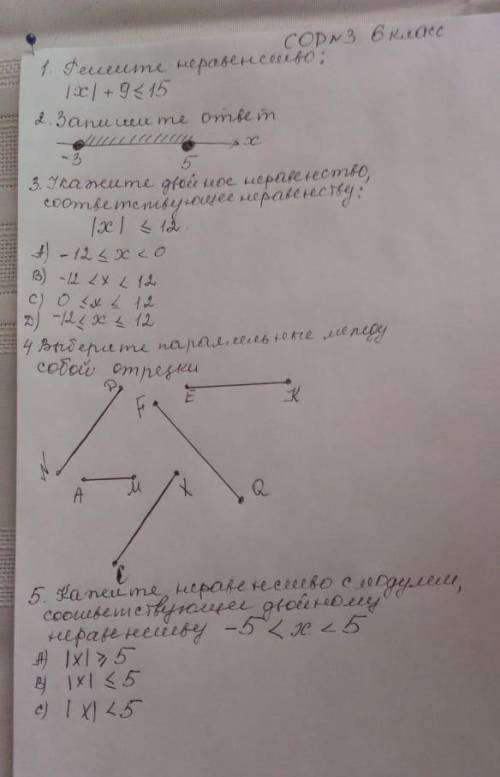 СОР №3 6 класс
1. Решите неравенство:
|x| + 9 ≤ 15
2. Запишите ответ
x
-3 5
3. Укажите двойное неравенство,
соответствующее неравенству:
|x| ≤ 12
А) -12 ≤ x < 0
В) -12 < x < 12
С) 0 ≤ x ≤ 12
Д) -12 ≤ x ≤ 12
4. Выберите параллельные между
собой отрезки
E K
F
N
A M X Q
C
5. Кажите неравенство с модулем,
соответствующее двойному
неравенству -5 < x < 5
А) |x| ≥ 5
В) |x| ≤ 5
С) |x| < 5